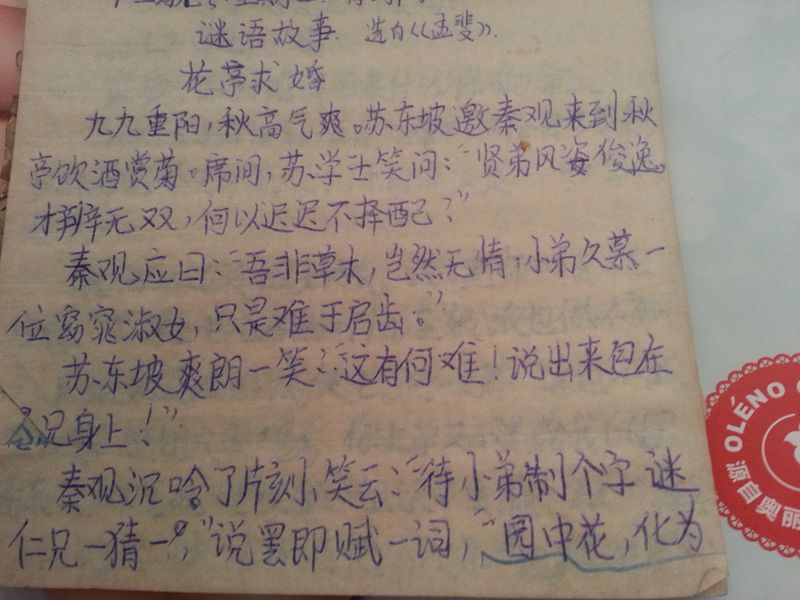 谜语故事. 选自《孟斐》.
花亭求婚
九九重阳，秋高气爽。苏东坡邀秦观来到秋
亭饮酒赏菊。席间，苏学士笑问：“贤弟风姿俊逸，
才辩无双，何以迟迟不择配？”
秦观应曰：“吾非草木，岂然无情，小弟久慕一
位窈窕淑女，只是难于启齿。”
苏东坡爽朗一笑：“这有何难！说出来包在
兄身上！”
秦观沉吟了片刻，笑云：“待小弟制个字谜
仁兄一猜，”说罢即赋一词，“园中花，化为
OLÉNO
源自奥丽